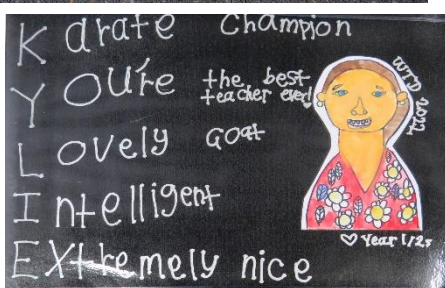 Karate Champion
You're the best teacher ever!
Lovely Goat
Intelligent
Extremely nice
WTD 2022
♡ Year 1/2s